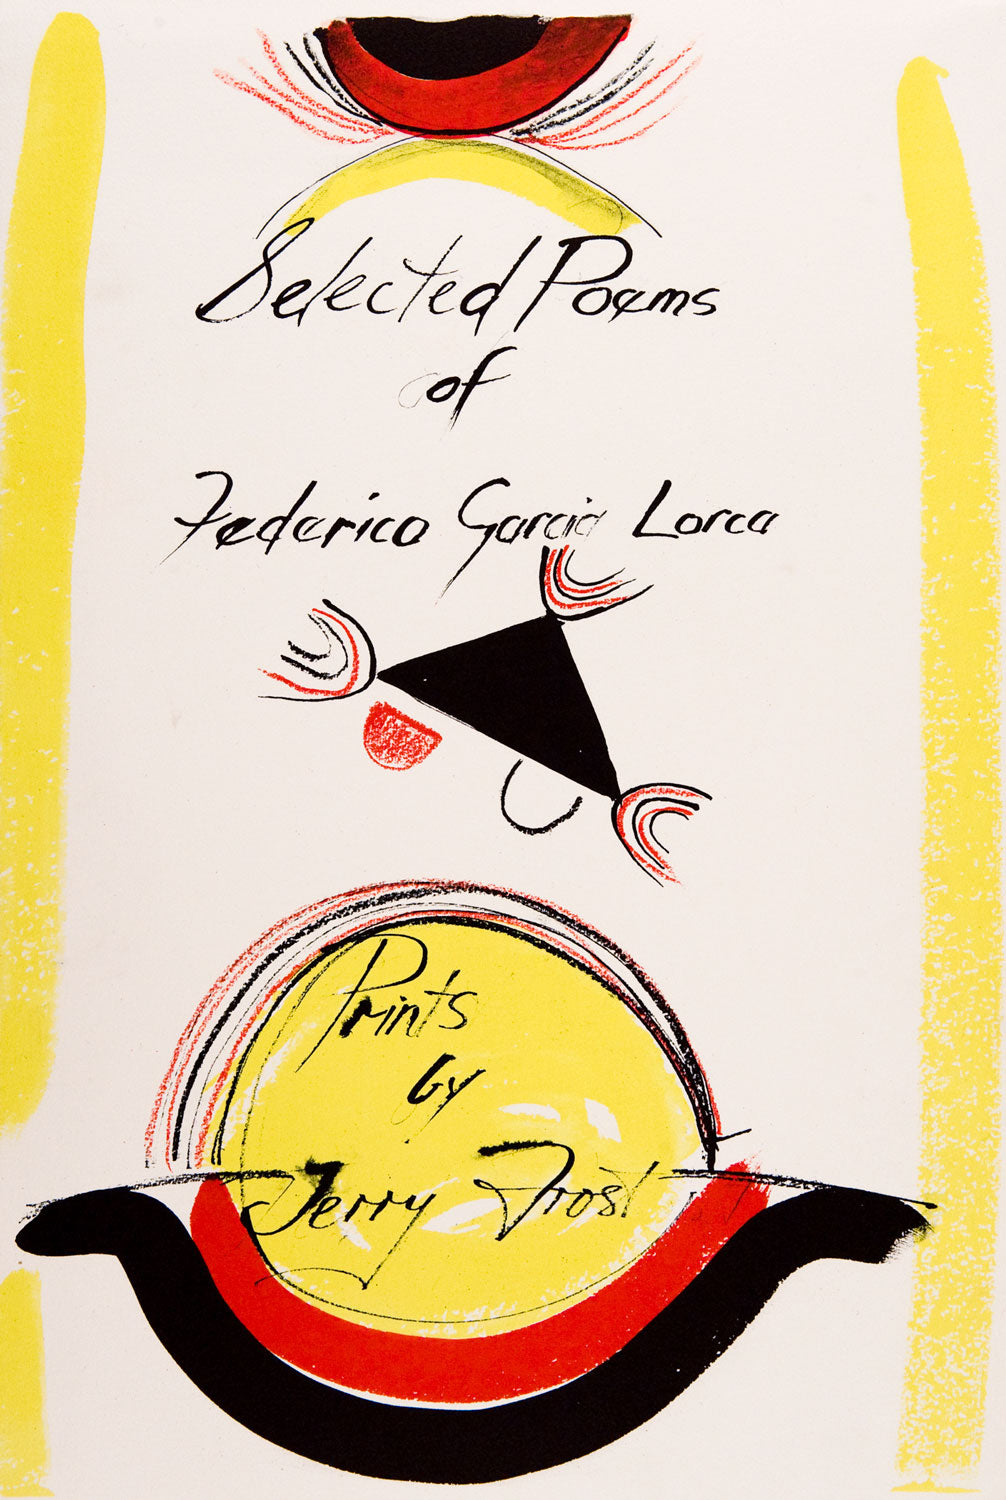 Selected Poems
of
Federico Garcia Lorca
Prints
by
Terry Frost